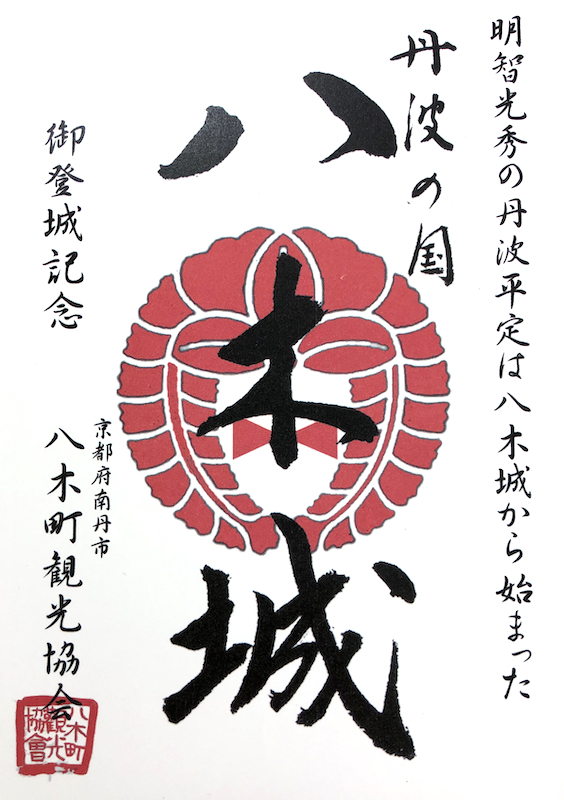 明智光秀の丹波平定は八木城から始まった
丹波の国
八木城
御登城記念
京都府南丹市
八木町観光協会
八木町
觀光
協會